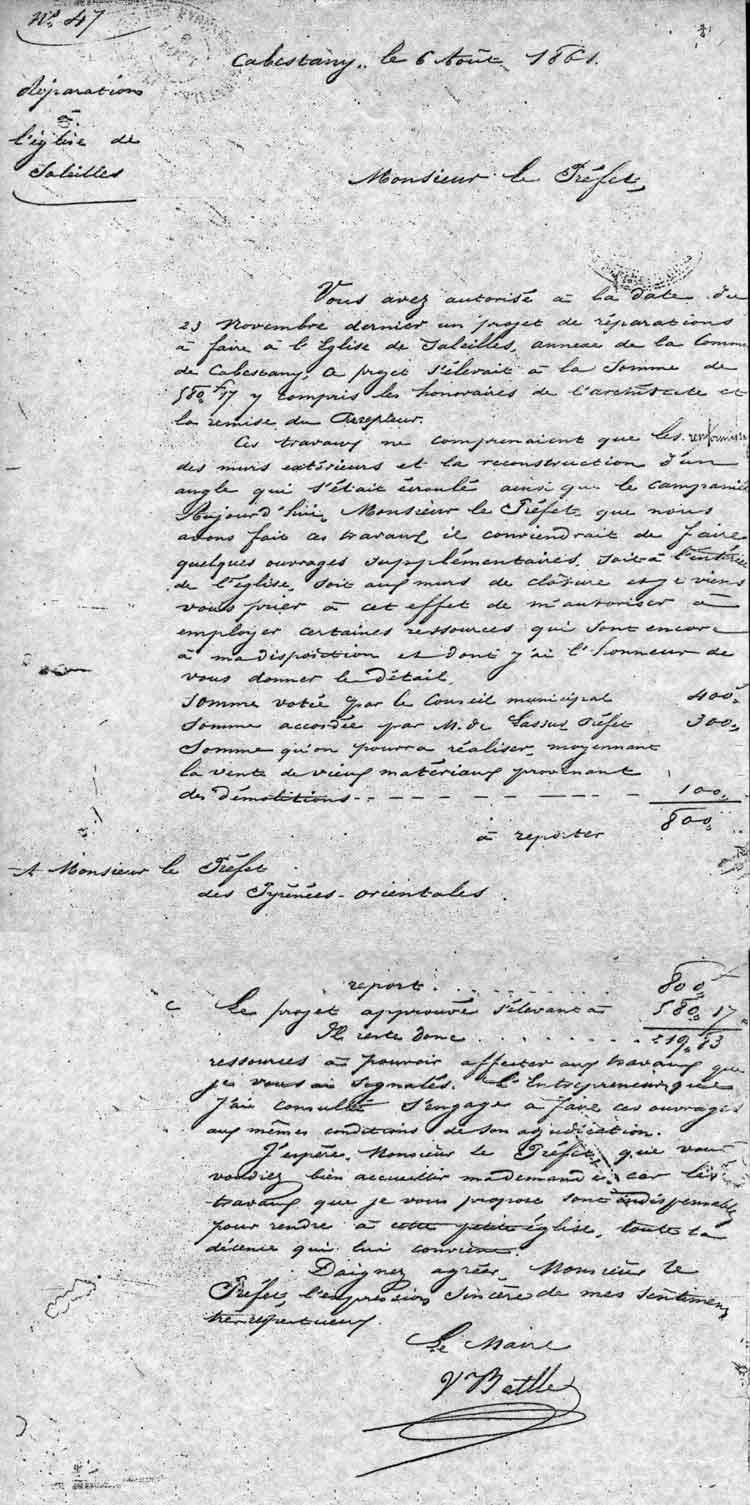 N° 47
Cabestany, le 6 Août 1861.
Réparations
à
l'église de
Saleilles
Monsieur le Préfet,
Vous avez autorisé à la date du
23 Novembre dernier un projet de réparations
à faire à l'Eglise de Saleilles, annexe de la Comm
de Cabestany, Ce projet s'élevait à la Somme de
580,f17 y compris les honoraires de l'architecte et
la remise du Percepteur.
Ces travaux ne comprenaient que les
des murs extérieurs et la reconstruction d'un
angle qui s'était écroulé ainsi que le campanile
Aujourd'hui, Monsieur le Préfet, que nous
avons fait ces travaux il conviendrait de faire
quelques ouvrages supplémentaires, soit à l'intérieur
de l'église, soit aux murs de clôture et je viens
vous prier à cet effet de m'autoriser à
employer certaines ressources qui sont encore
à ma disposition et dont j'ai l'honneur de
vous donner le détail.
Somme votée par le Conseil municipal 400,
Somme accordée par M. de Lassus Préfet 300,
Somme qu'on pourra réaliser, moyennant
la vente de vieux matériaux provenant
des démolitions - - - - - - - - 100,
à reporter 800,
A Monsieur le Préfet
des Pyrénées-orientales.
report. . . . . . . . 800,
Le projet approuvé s'élevant à 580, 17
Il reste donc . . . . . . . 219, 83
ressources à pouvoir affecter aux travaux que
je vous ai signalés. L'Entrepreneur que
j'ai consulté s'engage à faire ces ouvrages
aux mêmes conditions de son adjudication.
J'espère, Monsieur le Préfet, que vous
voudrez bien accueillir ma demande, car les
travaux que je vous propose sont indispensables
pour rendre à cette petite église, toute la
décence qui lui convient.
Daignez agréer, Monsieur le
Préfet, l'expression sincère de mes sentimens
très respectueux.
Le Maire
V Batlle